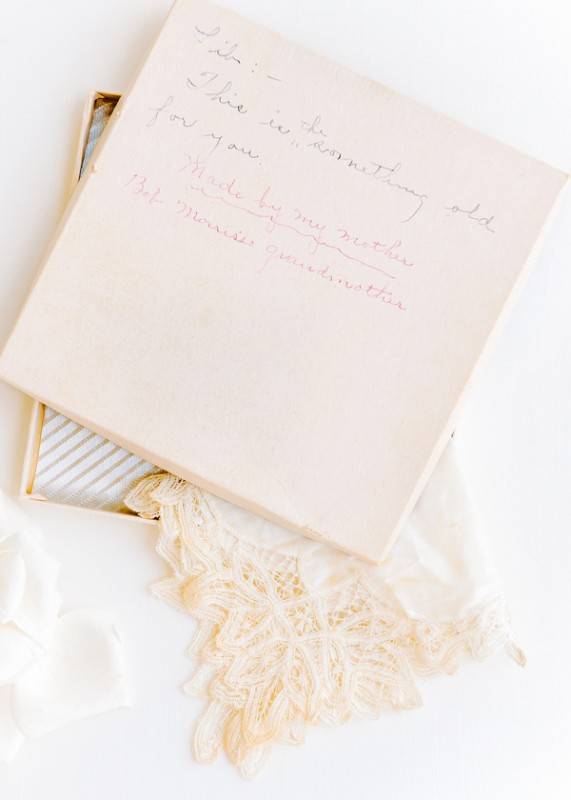 Sib :-
This is the "something old
for you.
Made by my mother
Bob Morriss' grandmother